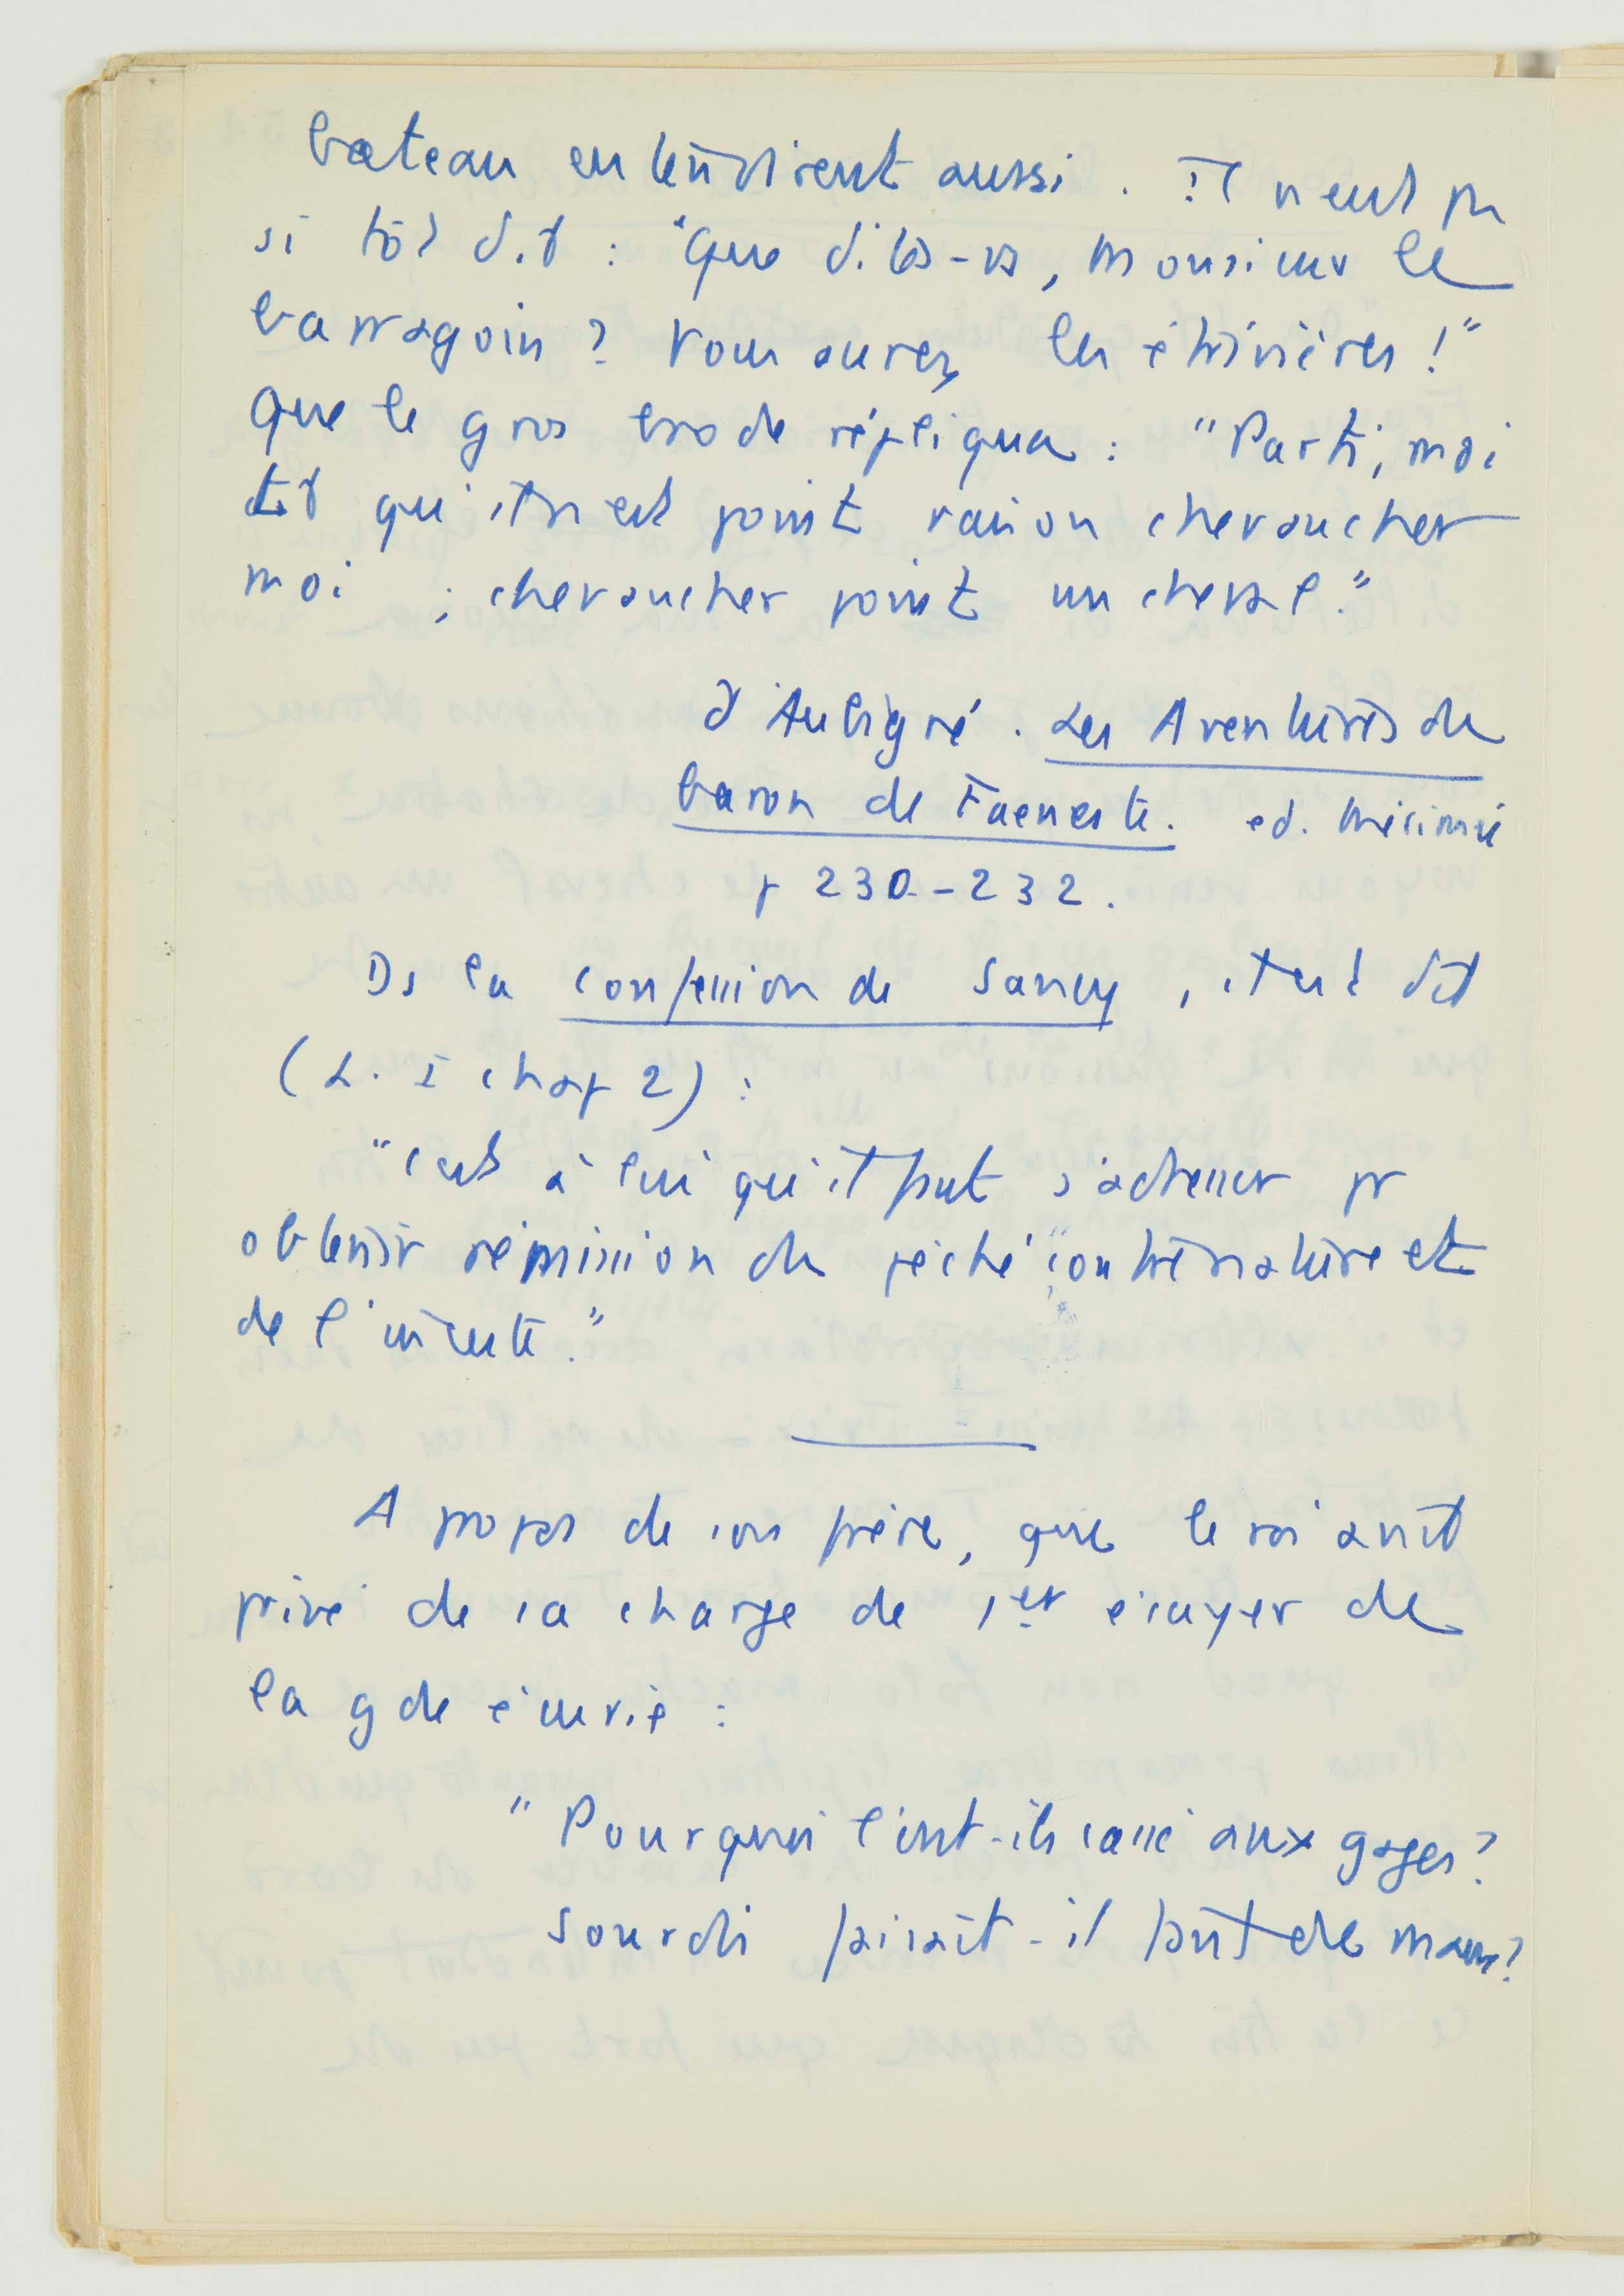 bateau entendirent aussi. Il n'eut pas
si tôt dit : "Que dites-vs, Monsieur le
barragoin ? Vous aurez les étrivières !"
Que le gros brode répliqua : "Parti, moi
dit qu'il n'est point raison chevaucher
moi ; chevaucher point un cheval."
d'Aubigné. Les Aventures du
baron de Faeneste. ed. Mérimée
p 230-232.
Ds la confession de Sancy, il est dit
(L. I chap 2) :
"C'est à lui qu'il faut s'adresser pr
obtenir rémission du péché contre nature et
de l'inceste."
A propos de son frère, que le roi avait
privé de sa charge de 1er écuyer de
la gde écurie :
"Pourquoi l'ont-ils cassé aux gages ?
Sourdi faisait-il faute de